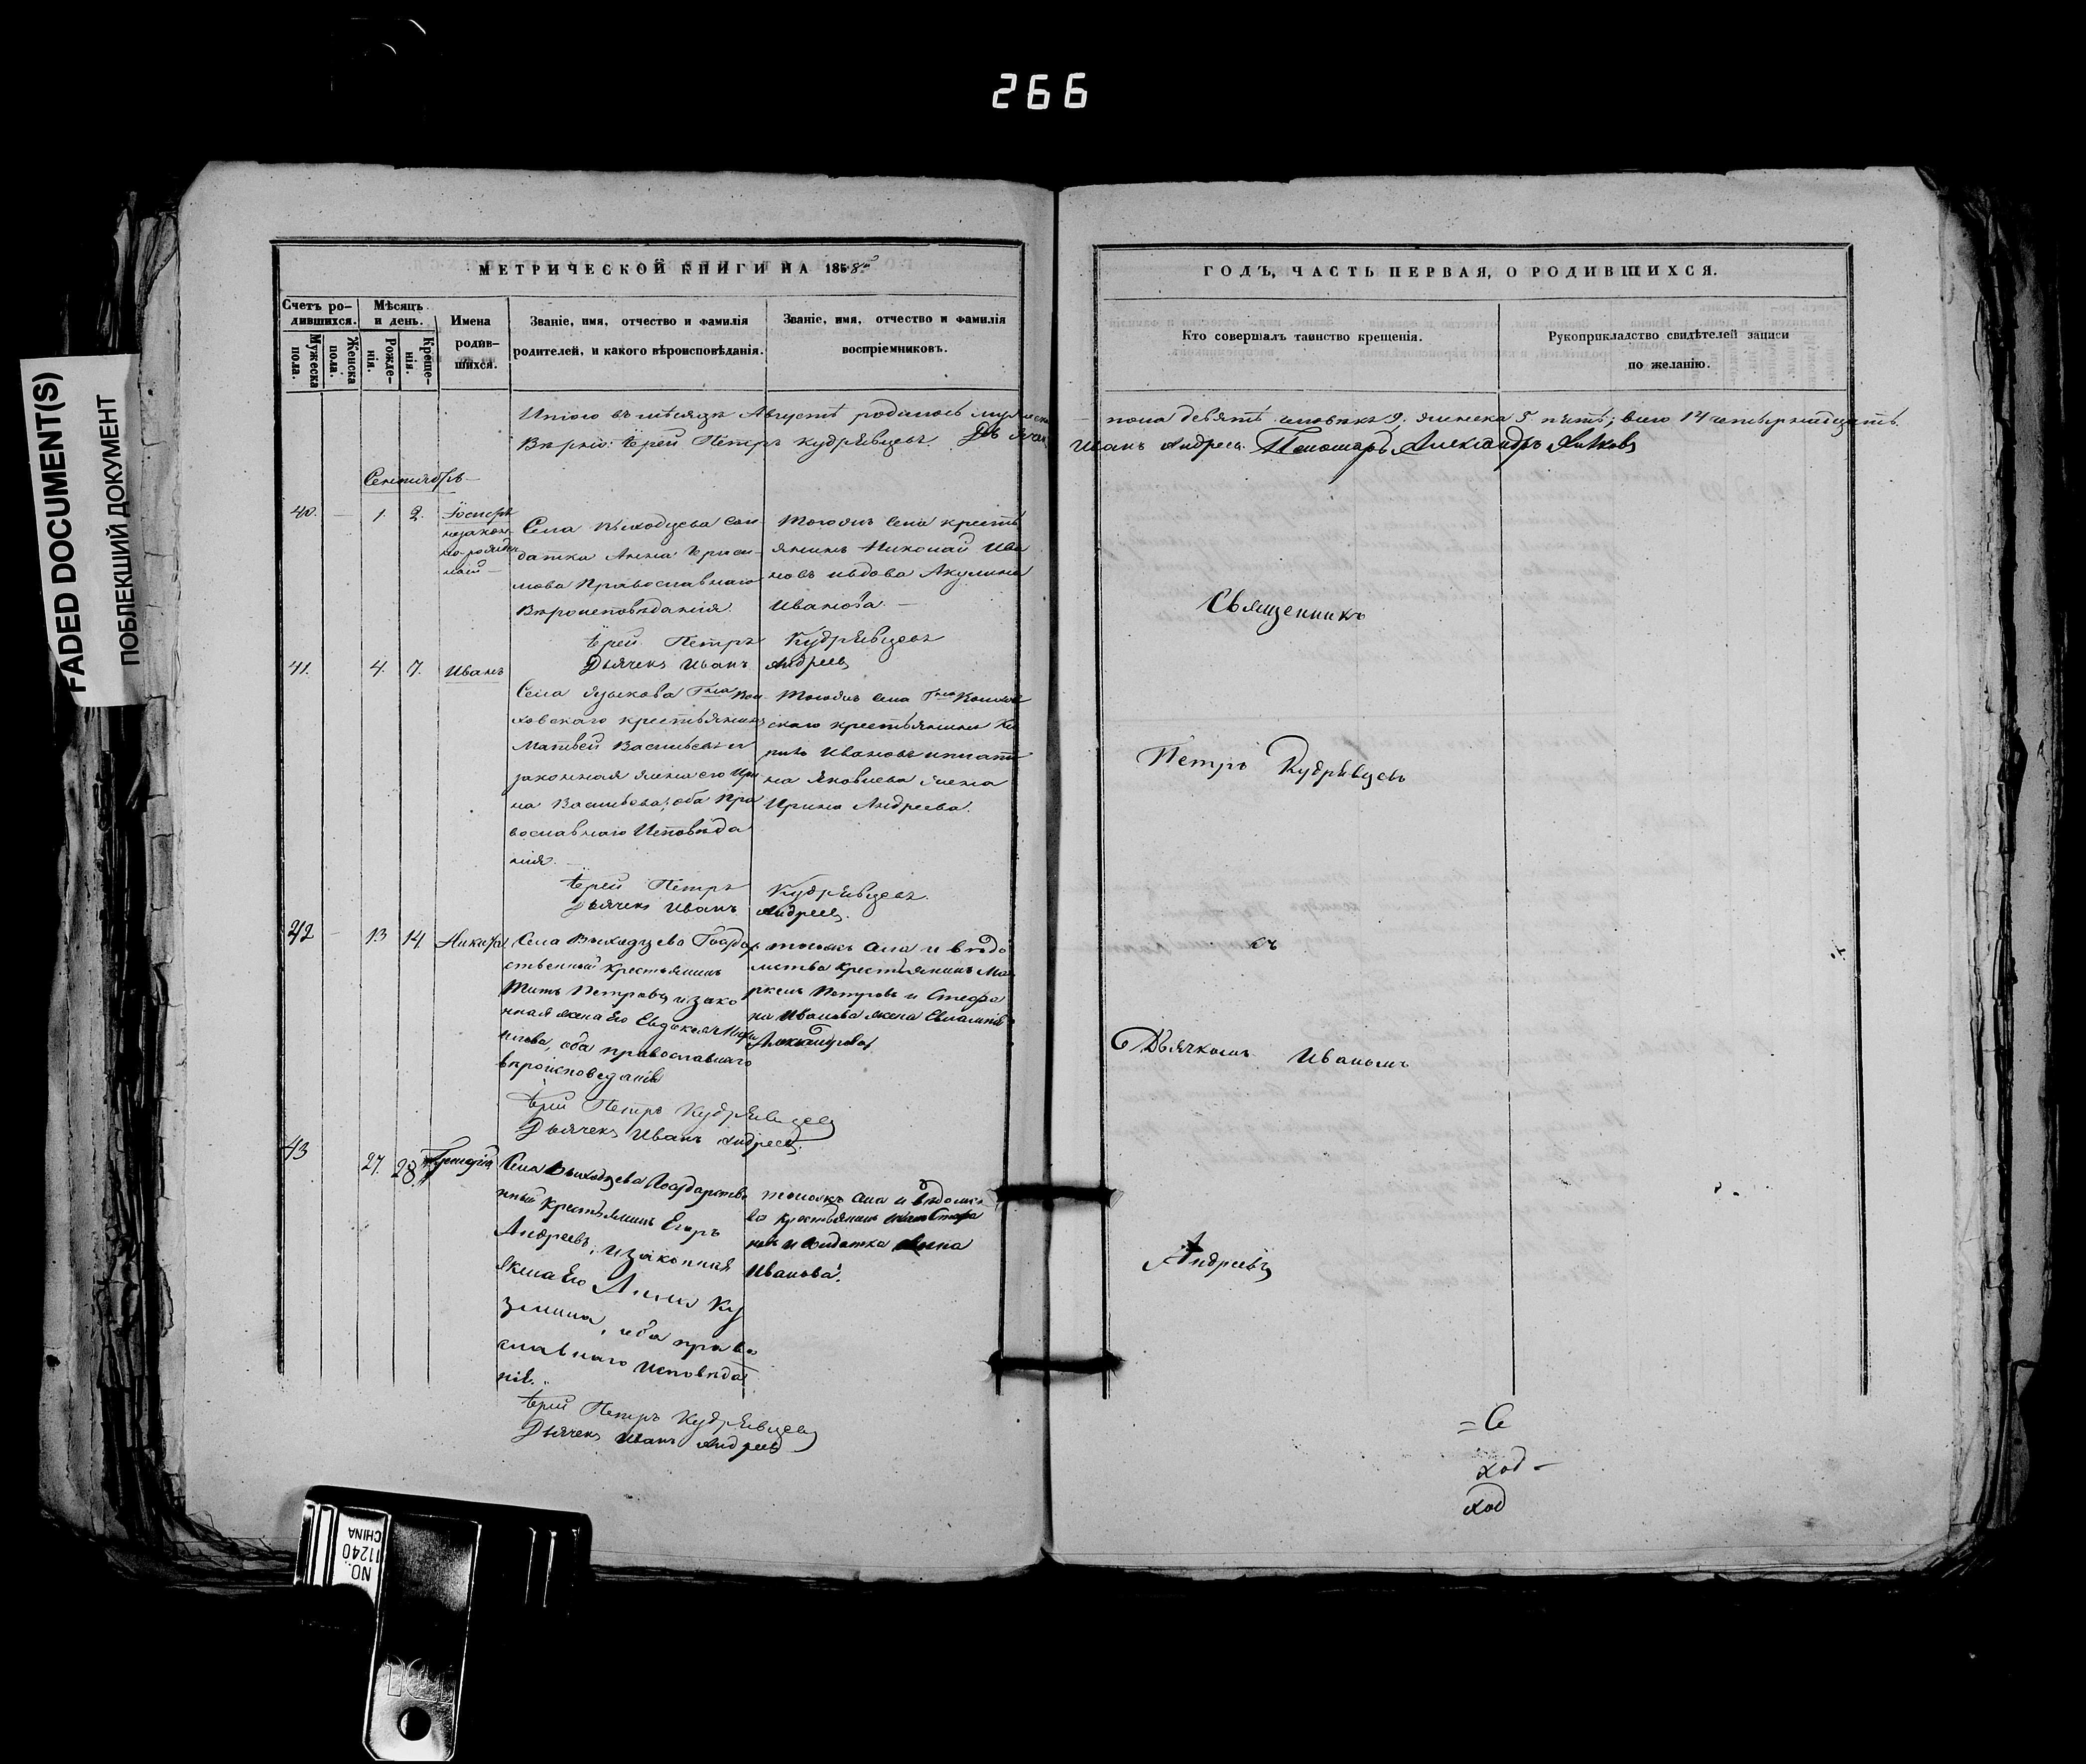 266
FADED DOCUMENT(S)
ПОБЛЕКШИЙ ДОКУМЕНТ
МЕТРИЧЕСКОЙ КНИГИ НА 1858
Счетъ ро-
дившихся.
Мужеска
пола.
Женска
пола.
Мѣсяцъ
и день.
Рожде-
нія.
Креще-
нія.
Имена
родив-
шихся.
Званіе, имя, отчество и фамилія
родителей, и какого вѣроисповѣданія.
Званіе, имя, отчество и фамилія
воспріемниковъ.
Итого въ мѣсяцѣ Августѣ родилось
Вѣрно: Іерей Петръ Кудрявцевъ.
Сентябрь
40. 1. 2.
незакон-
но-рожден
ный
Села Выходцева сол-
датка Анна
мова Православнаго
Вѣроисповѣданія.
Тогожъ села кресть
янинъ Николай Ива
новъ ивдова Акулина
Иванова.
Іерей Петръ Кудрявцевъ
Дьячекъ Иванъ Андреевъ
41. 4. 7. Иванъ
Села
ховскаго крестьянинъ
Матвей Васильевъ и
законная жена его Ири
на Васильева, оба Пра
вославнаго Исповѣда
нія.
Тогожъ села
скаго крестьянинъ
Ивановъ
на Яковлева жена
Ирина Андреева.
Іерей Петръ Кудрявцевъ.
Дьячекъ Иванъ Андреевъ.
42 13 14 Никита
Села Выходцева Государ
ственный крестьянинъ
Титъ Петровъ, и зако
нная жена Его Евдокея
оба православнаго
вѣроисповеданія
тогожъ села и вѣдо
мства крестьянинъ Ма
ркелъ Петровъ и Стефа
на Иванова жена
Александрова
Іерей Петръ Кудрявцевъ
Дьячекъ Иванъ Андреевъ.
43 27. 28.
Села Выходцева Государстве
нный крестьянинъ Егоръ
Андреевъ, и законная
жена Его Анна Ку
змина, оба право
славнаго Исповѣда
нія.
тогожъ села и вѣдомст
ва крестьянинъ
и солдатка Анна
Иванова.
Іерей Петръ Кудрявцевъ
Дьячекъ Иванъ Андреевъ
ГОДЪ, ЧАСТЬ ПЕРВАЯ, О РОДИВШИХСЯ.
Кто совершалъ таинство крещенія.
Рукоприкладство свидѣтелей записи
по желанію.
пола девять человѣкъ 9. женска 5 пять; всего 14 четырнадцать.
Иванъ Андреевъ. Пономарь Александръ
Священникъ
Петръ Кудрявцевъ
съ
Дьячкомъ Иваномъ
Андреевъ
= С
ход-
ход
NO.
11240
CHINA